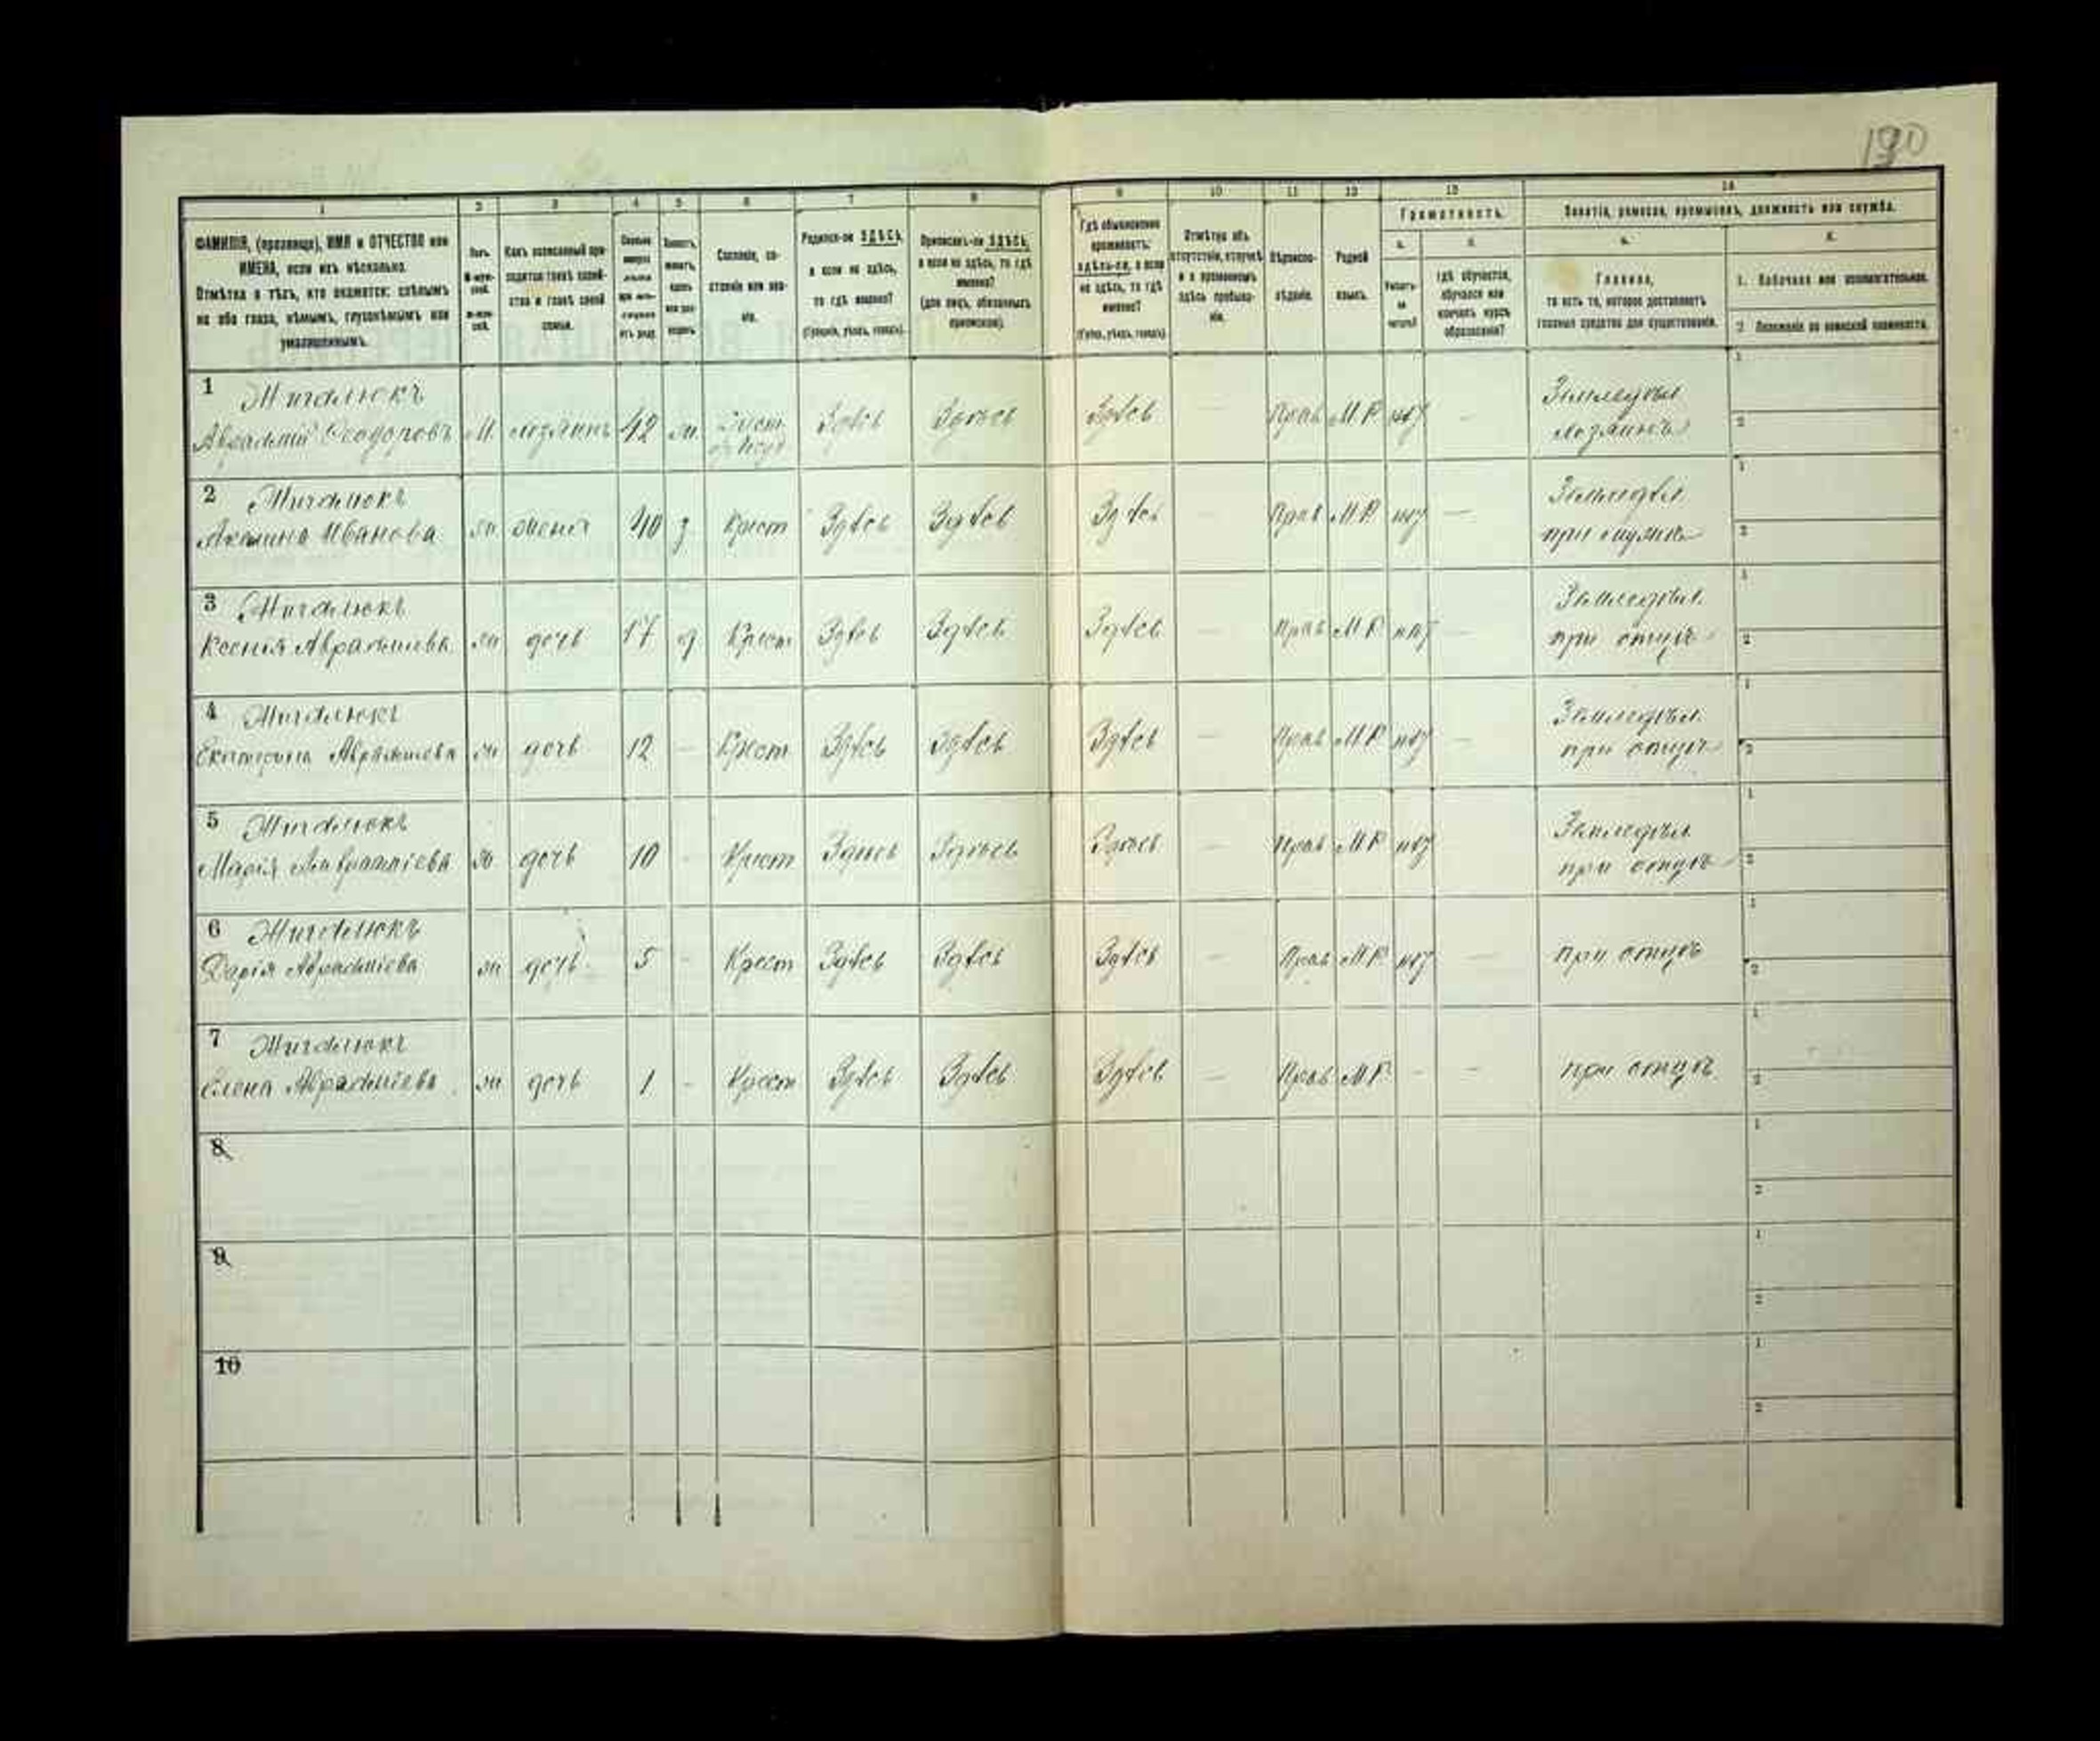 190
1 2 3 4 5 6 7 8 9 10 11 12 13 14
ФАМИЛІЯ, (прозвище), ИМЯ и ОТЧЕСТВО или
ИМЕНА, если ихъ нѣсколько.
Отмѣтка о тѣхъ, кто окажется: слѣпымъ
на оба глаза, нѣмымъ, глухонѣмымъ или
умалишеннымъ.
Полъ.
Какъ записанный при-
ходится главѣ хозяй-
ства и главѣ своей
семьи.
Сословіе, со-
стояніе или зва-
ніе.
Родился-ли ЗДѢСЬ,
а если не здѣсь,
то гдѣ именно?
(Губернія, уѣздъ, городъ).
Приписанъ-ли ЗДѢСЬ,
а если не здѣсь, то гдѣ
именно?
(для лицъ, обязанныхъ
припискою).
Гдѣ обыкновенно
проживаетъ:
здѣсь-ли, а если
не здѣсь, то гдѣ
именно?
(Губ., уѣздъ, городъ).
Отмѣтка объ
отсутствіи, отлучкѣ
и о временномъ
здѣсь пребыва-
ніи.
Вѣроиспо-
вѣданіе.
Родной
языкъ.
Грамотность.
а. б.
Умѣетъ-
ли
читать?
Гдѣ обучается,
обучался или
кончилъ курсъ
образованія?
Занятіе, ремесло, промыселъ, должность или служба.
а.
Главное,
то есть то, которое доставляетъ
главныя средства для существованія.
1. Побочное или вспомогательное.
2. Положеніе по воинской повинности.
1 Жигалюкъ Земледѣл
Аврамій Ѳеодоровъ М. хозяинъ 42 ж Здѣсь Здѣсь Здѣсь — Прав М.Р. нѣт — хозяинъ
2 Жигалюкъ Земледѣл
Акилина Иванова ж жена 40 з Крест Здѣсь Здѣсь Здѣсь — Прав М.Р. нѣт — при мужѣ
3 Жигалюкъ Земледѣл.
Ксенія Аврамиева ж дочь 17 д Крест Здѣсь Здѣсь Здѣсь — Прав М.Р нѣт — при отцѣ
4 Жигалюкъ Земледѣл.
Екатерина Аврамиева ж дочь 12 - Крест Здѣсь Здѣсь Здѣсь — Прав М.Р нѣт — при отцѣ
5 Жигалюкъ Земледѣл
Марія Аврамніева ж дочь 10 - Крест Здѣсь Здѣсь Здѣсь — Прав М.Р нѣт — при отцѣ
6 Жигалюкъ
Дарія Авраміева ж дочь 5 - Крест Здѣсь Здѣсь Здѣсь — Прав М.Р нѣт — при отцѣ
7 Жигалюкъ
Елена Авраміева ж дочь 1 - Крест Здѣсь Здѣсь Здѣсь — Прав М.Р - - при отцѣ
8
9
10